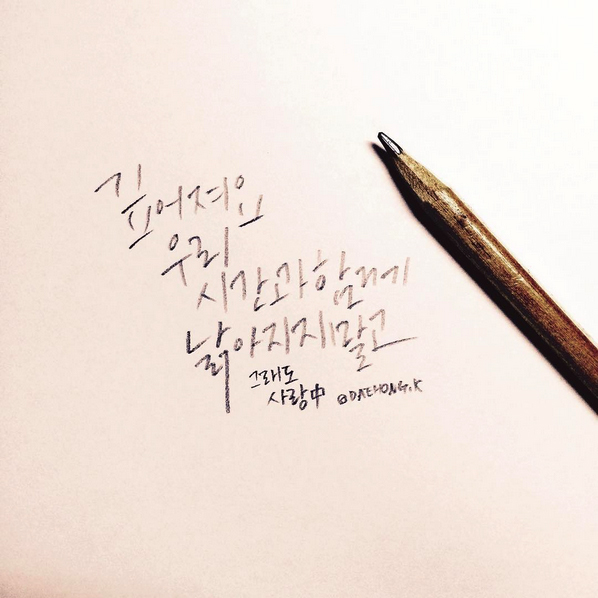 깊어져요
우리
시간과 함께
낡아지지 말고
그래도
사랑中 @DAEHONG.K